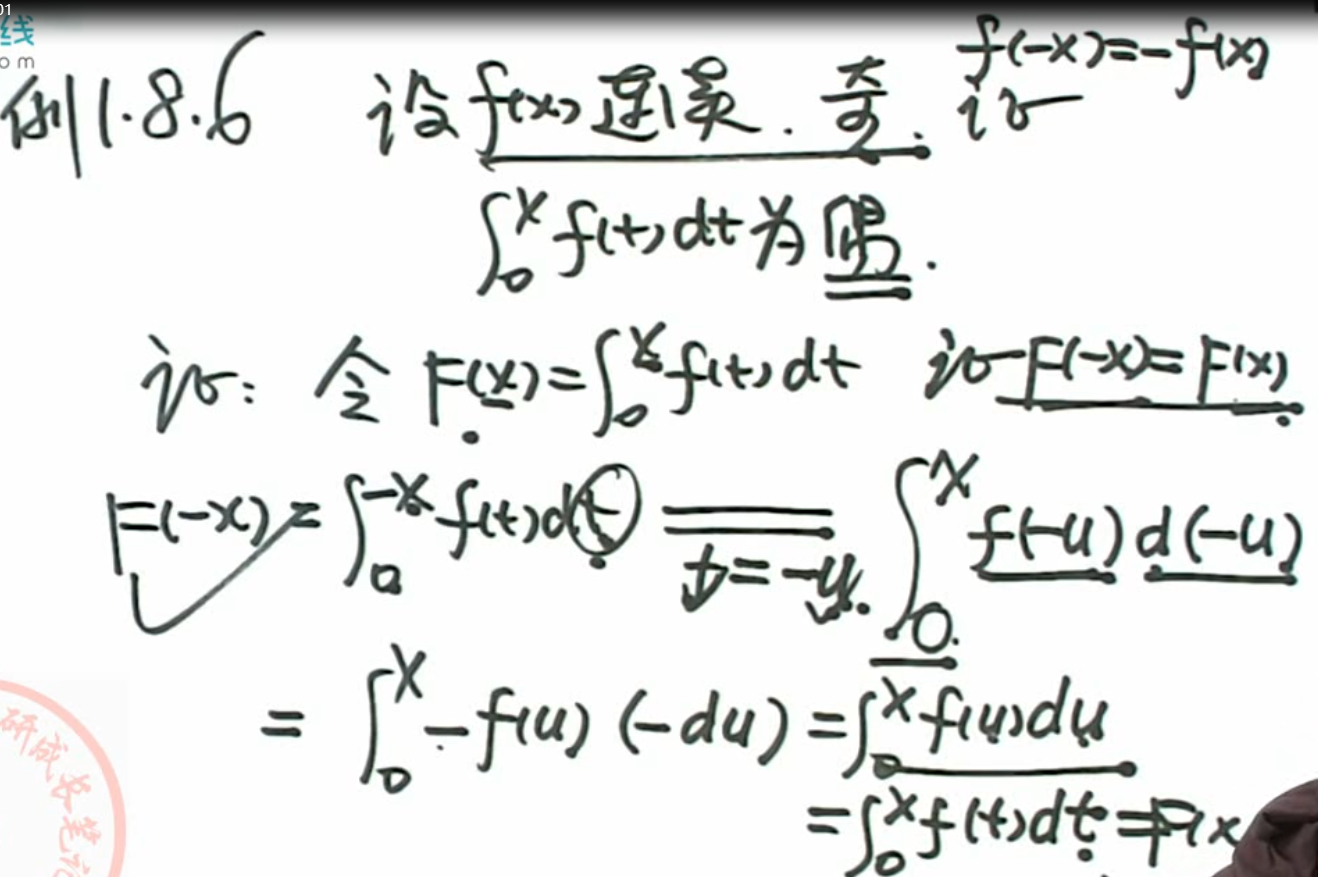 01
线
om
f(-x)=-f(x)
例1.8.6 设f(x)连续.奇.证
∫₀ˣ f(t)dt为偶.
证: 令 F(x)=∫₀ˣ f(t)dt 证F(-x)=F(x)
F(-x)=∫₀⁻ˣ f(t)dt ══(t=-u.) ∫₀ˣ f(-u)d(-u)
=∫₀ˣ -f(u)(-du)=∫₀ˣ f(u)du
=∫₀ˣ f(t)dt=F(x
研成长笔记